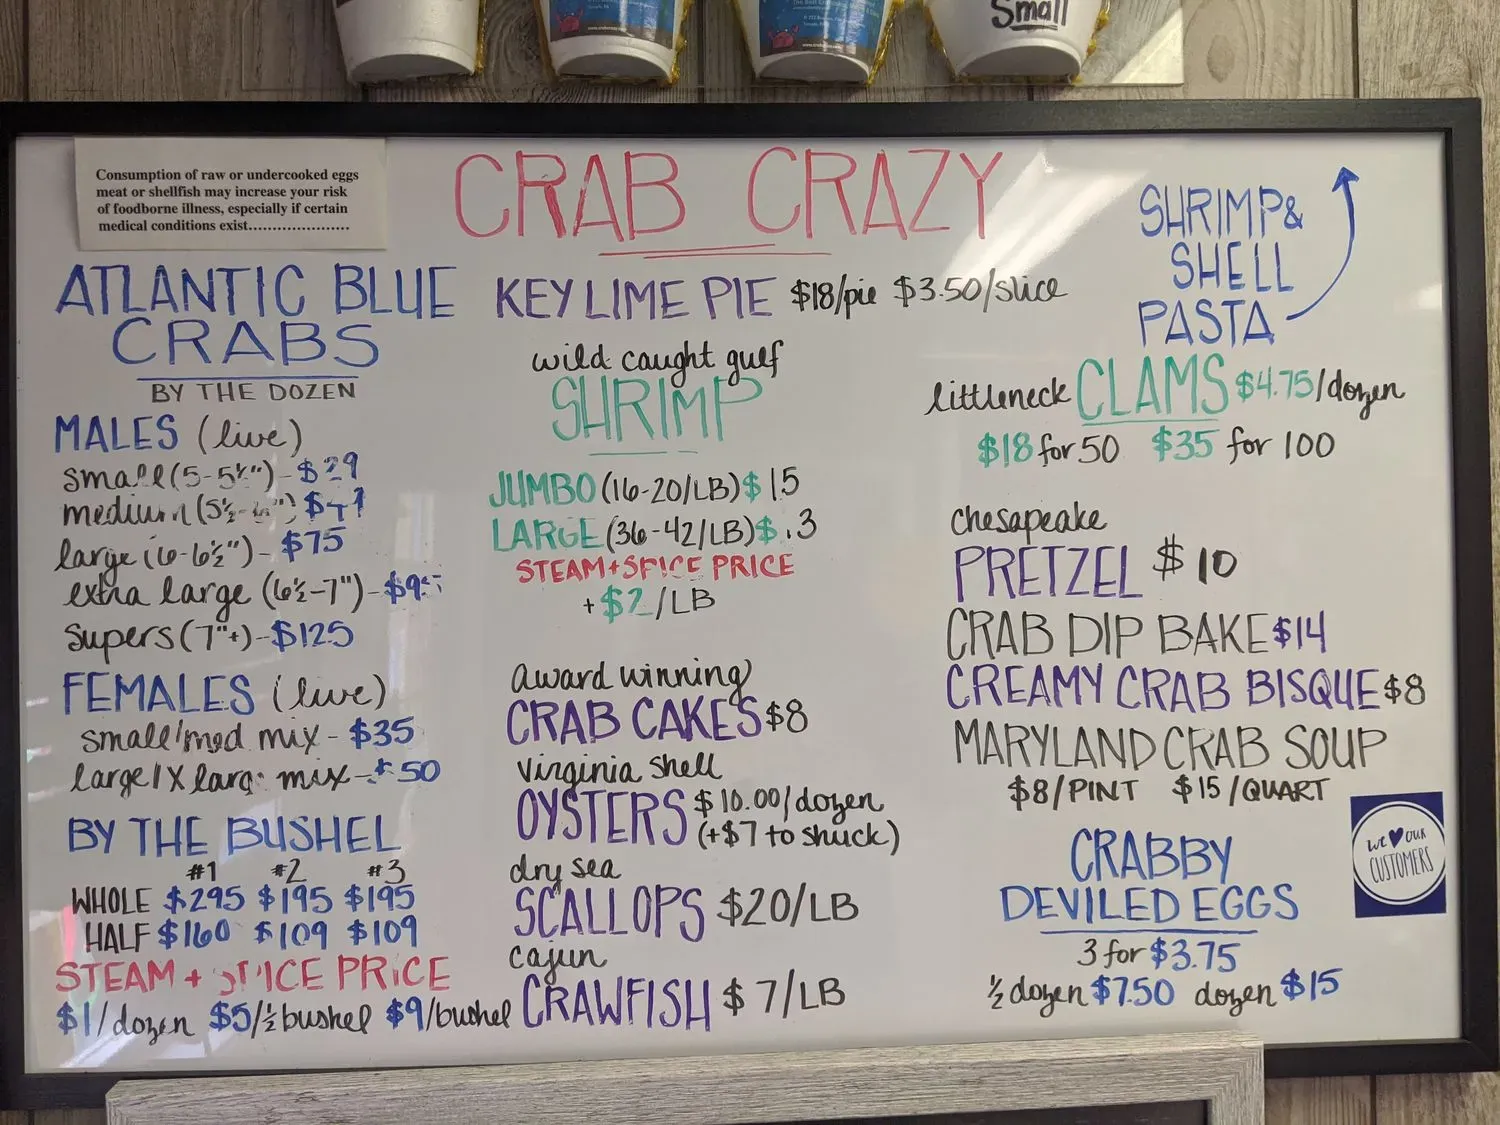 Small
Consumption of raw or undercooked eggs
meat or shellfish may increase your risk
of foodborne illness, especially if certain
medical conditions exist.....................
CRAB CRAZY
ATLANTIC BLUE
CRABS
BY THE DOZEN
MALES (live)
small (5-5½") - $29
medium (5½-6")
large (6-6½") - $75
extra large (6½-7") -
supers (7"+) - $125
FEMALES (live)
small/med mix - $35
large/X large mix - $50
BY THE BUSHEL
#1 #2 #3
WHOLE $295 $195 $195
HALF $160 $109 $109
STEAM + SPICE PRICE
$1/dozen $5/½ bushel $9/bushel
KEY LIME PIE $18/pie $3.50/slice
wild caught gulf
SHRIMP
JUMBO (16-20/LB) $15
LARGE (36-42/LB)
STEAM + SPICE PRICE
+ $2/LB
award winning
CRAB CAKES $8
virginia shell
OYSTERS $10.00/dozen
(+$7 to shuck)
dry sea
SCALLOPS $20/LB
cajun
CRAWFISH $7/LB
SHRIMP &
SHELL
PASTA
littleneck CLAMS $4.75/dozen
$18 for 50 $35 for 100
chesapeake
PRETZEL $10
CRAB DIP BAKE $14
CREAMY CRAB BISQUE $8
MARYLAND CRAB SOUP
$8/PINT $15/QUART
CRABBY
DEVILED EGGS
3 for $3.75
½ dozen $7.50 dozen $15
we ♥ our
CUSTOMERS